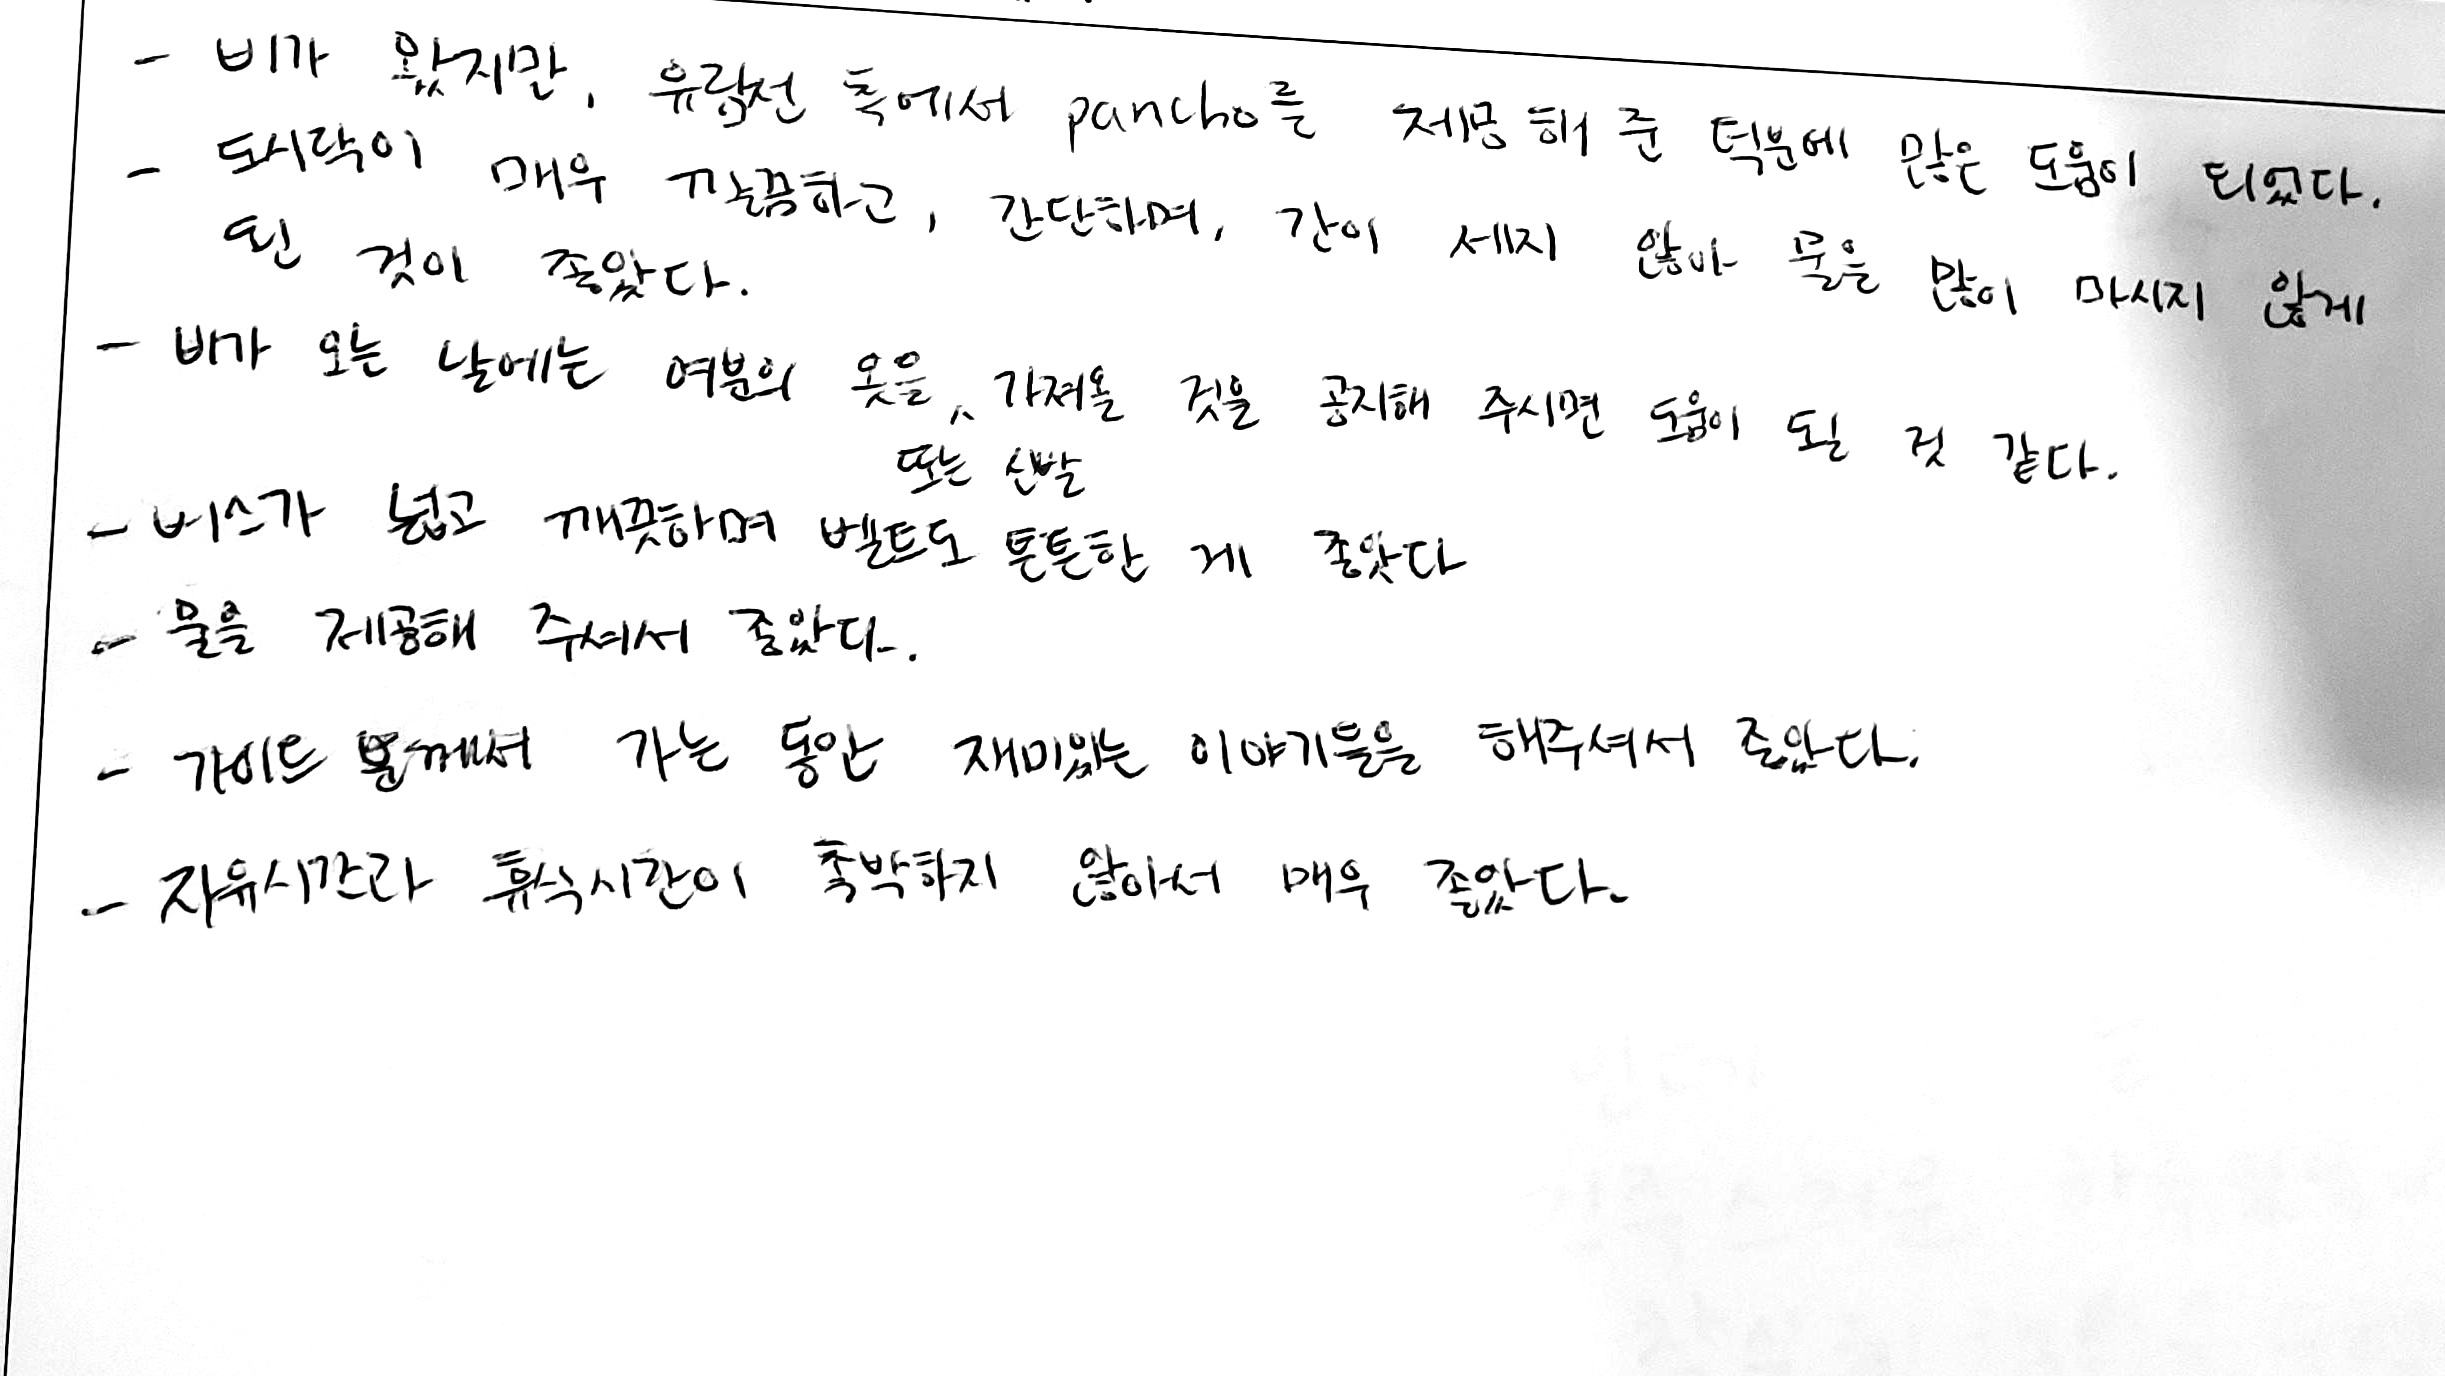 - 비가 왔지만, 유람선 측에서 pancho를 제공해 준 덕분에 많은 도움이 되었다.
- 도시락이 매우 깔끔하고, 간단하며, 간이 세지 않아 물을 많이 마시지 않게
된 것이 좋았다.
- 비가 오는 날에는 여분의 옷을 ^ 가져올 것을 공지해 주시면 도움이 될 것 같다.
또는 신발
- 버스가 넓고 깨끗하며 벨트도 튼튼한 게 좋았다
- 물을 제공해 주셔서 좋았다.
- 가이드 분께서 가는 동안 재미있는 이야기들을 해주셔서 좋았다.
- 자유시간과 휴식시간이 촉박하지 않아서 매우 좋았다.